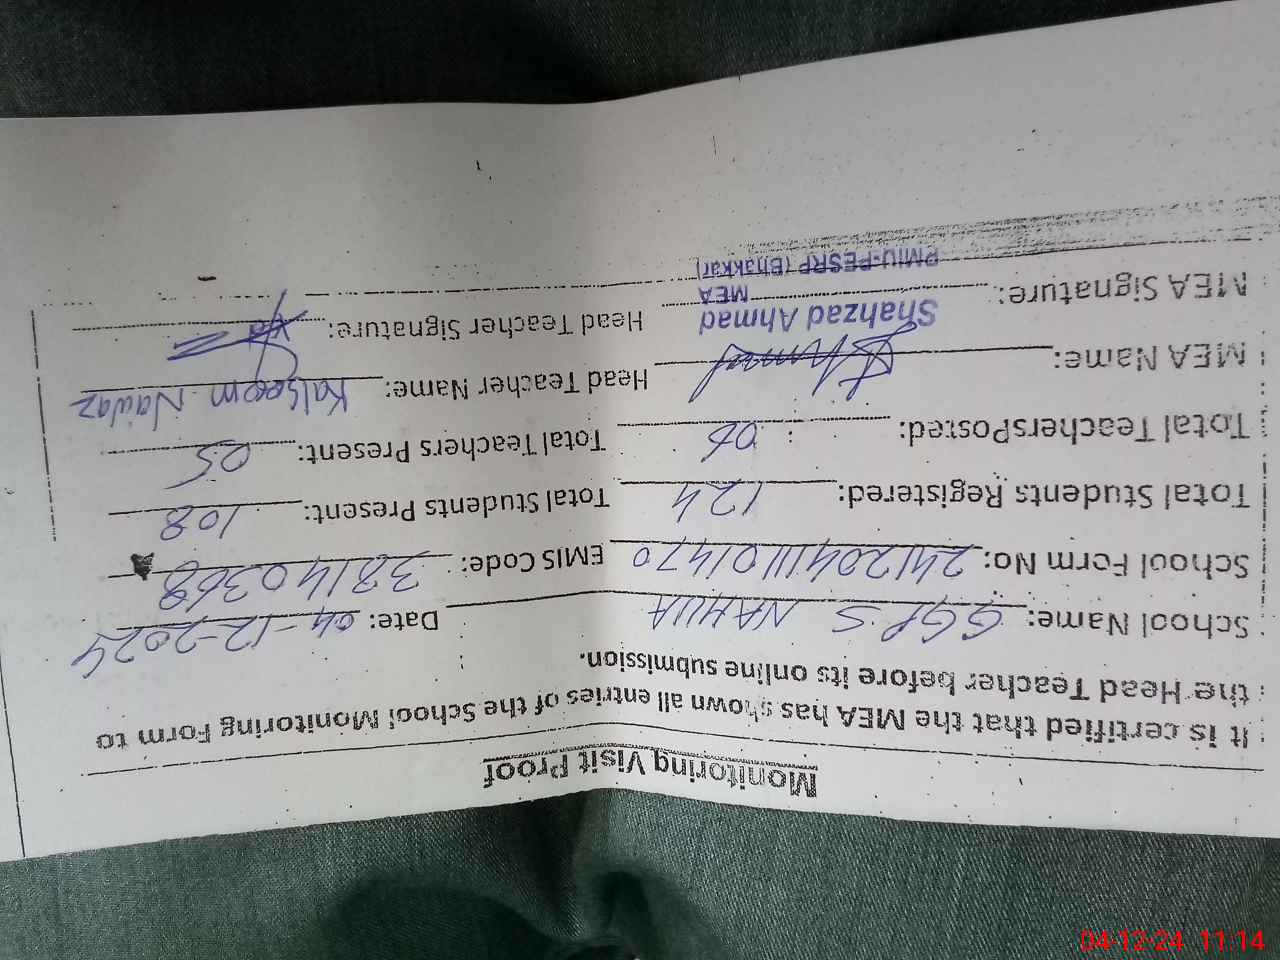 Monitoring Visit Proof
It is certified that the MEA has shown all entries of the School Monitoring Form to
the Head Teacher before its online submission.
School Name: GGPS NAHUA Date: 04-12-2024
School Form No: 24120411101470 EMIS Code: 38140368
Total Students Registered: 124 Total Students Present: 108
Total TeachersPosted: 06 Total Teachers Present: 05
MEA Name: Head Teacher Name: Kalsoom Nawaz
Shahzad Ahmad
MEA Signature: MEA Head Teacher Signature:
PMIU-PESRP (Bhakkar)
04-12-24 11:14